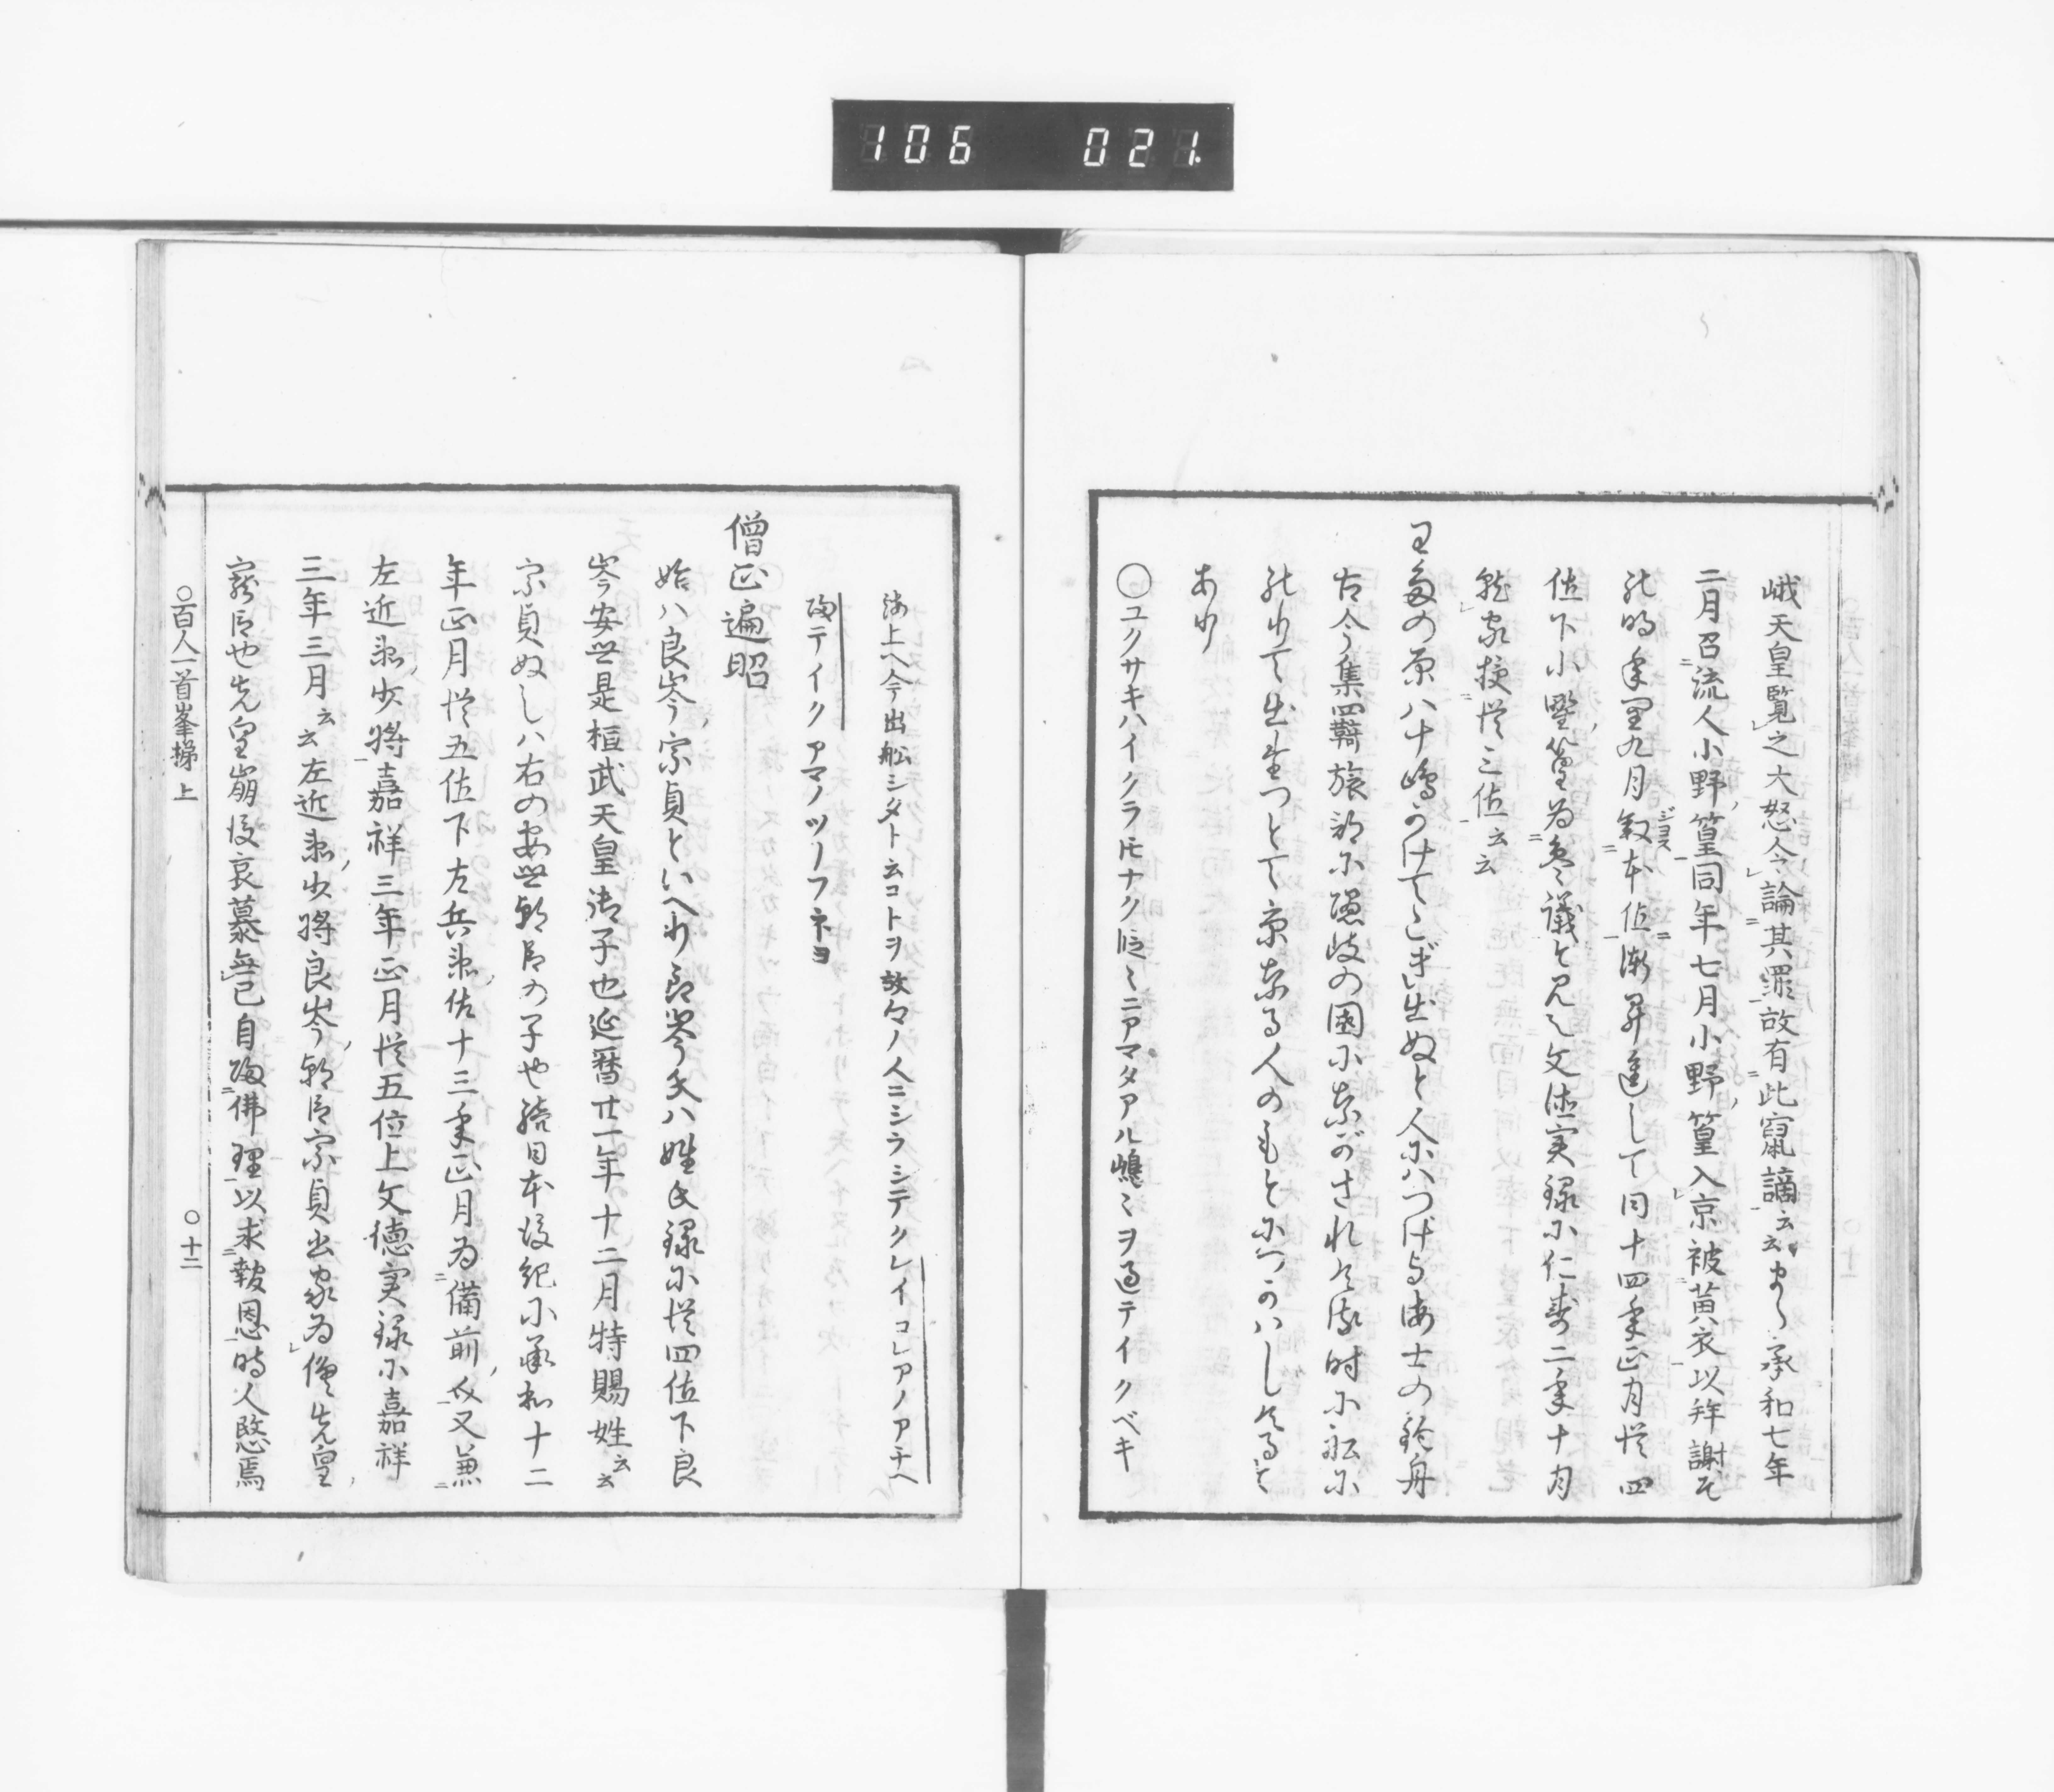 106 021
峨天皇覧之大怒令論其罪故有此竄謫云云また承和七年
二月召流人小野篁同年七月小野篁入京被黄衣以拝謝そ
の時年里九月叙本位漸昇進して同十四年正月従四
ジヨス
位下小野篁為参議と見え文徳実録に仁寿二年十二月
就家授従三位云云
わたの原八十嶋かけてこぎ出ぬと人にはつげよ海士の釣舟
古今集四羇旅部に隠岐の国にながされける時に船に
のりて出たつとて京なる人のもとにつかはしけると
あり
〇ユクサキハイクラトモナク段〻ニアマタアル嶋〻ヲ通テイクベキ
海上ヘ今出船シタト云コトヲ故々ノ人ニシラシテクレイコレアノアチヘ
帰テイクアマノツリフネヨ
僧正遍昭
始ハ良岑宗貞といへり良岑氏ハ姓氏録に従四位下良
岑安世是桓武天皇御子也延暦廿一年十二月特賜姓云云
宗貞ぬしハ右の安世朝臣の子也続日本後紀に承和十二
年正月従五位下左兵衛佐十三年正月為備前介又兼
左近衛少将嘉祥三年正月従五位上文徳実録に嘉祥
三年三月云云左近衛少将良岑朝臣宗貞出家為僧先皇
寵臣也先皇崩後哀慕無已自帰佛理以求報恩時人愍焉
○百人一首峯梯 上 ○十二